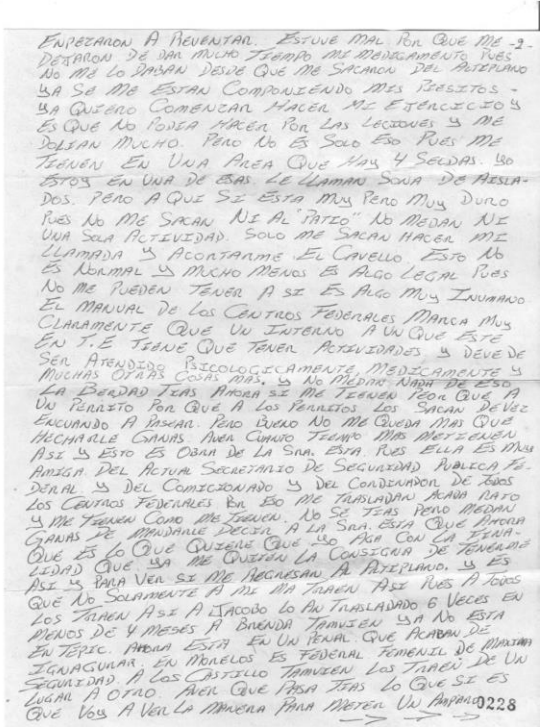 ENPEZARON A REVENTAR. ESTUVE MAL POR QUE ME -2-
DEJARON DE DAR MUCHO TIEMPO MI MEDICAMENTO PUES
NO ME LO DABAN DESDE QUE ME SACARON DEL ALTIPLANO
YA SE ME ESTAN COMPONIENDO MIS PIESITOS -
YA QUIERO COMENZAR HACER MI EJERCICIO Y
ES QUE NO PODIA HACER POR LAS LECIONES Y ME
DOLIAN MUCHO. PERO NO ES SOLO ESO PUES ME
TIENEN EN UNA AREA QUE HAY 4 SELDAS. YO
ESTOY EN UNA DE ESAS. LE LLAMAN SONA DE AISLA-
DOS. PERO AQUI SI ESTA MUY PERO MUY DURO
PUES NO ME SACAN NI AL "PATIO" NO MEDAN NI
UNA SOLA ACTIVIDAD. SOLO ME SACAN HACER MI
LLAMADA Y ACORTARME EL CAVELLO. ESTO NO
ES NORMAL Y MUCHO MENOS ES ALGO LEGAL PUES
NO ME PUEDEN TENER A SI ES ALGO MUY INUMANO
EL MANUAL DE LOS CENTROS FEDERALES MARCA MUY
CLARAMENTE QUE UN INTERNO A UN QUE ESTE
EN T.E TIENE QUE TENER ACTIVIDADES Y DEVE DE
SER ATENDIDO PSICOLOGICAMENTE, MEDICAMENTE Y
MUCHAS OTRAS COSAS MAS. Y NO MEDAN NADA DE ESO
LA BERDAD TIAS AHORA SI ME TIENEN PEOR QUE A
UN PERRITO POR QUE A LOS PERRITOS LOS SACAN DEVEZ
ENCUANDO A PASEAR. PERO BUENO NO ME QUEDA MAS QUE
HECHARLE GANAS. AVER CUANTO TIEMPO MAS METIENEN
ASI Y ESTO ES OBRA DE LA SRA. ESTA PUES ELLA ES MUY
AMIGA DEL ACTUAL SECRETARIO DE SEGURIDAD PUBLICA FE-
DERAL Y DEL COMICIONADO Y DEL CORDINADOR DE TODOS
LOS CENTROS FEDERALES POR ESO ME TRASLADAN ACADA RATO
Y ME TIENEN COMO ME TIENEN. NO SE TIAS PERO MEDAN
GANAS DE MANDARLE DECIR A LA SRA. ESTA QUE AHORA
QUE ES LO QUE QUIERE QUE YO AGA CON LA FINA-
LIDAD QUE YA ME QUITEN LA CONSIGNA DE TENERME
ASI Y PARA VER SI ME REGRESAN A ALTIPLANO. Y ES
QUE NO SOLAMENTE A MI MA TRAEN ASI PUES A TODOS
LOS TRAEN ASI A JACOBO LO AN TRASLADADO 6 VECES EN
MENOS DE 4 MESES A BRENDA TAMVIEN YA NO ESTA
EN TEPIC. AHORA ESTA EN UN PENAL QUE ACABAN DE
IGNAGURAR, EN MORELOS ES FEDERAL FEMENIL DE MAXIMA
SEGURIDAD. A LOS CASTILLO TAMVIEN LOS TRAEN DE UN
LUGAR A OTRO. AVER QUE PASA TIAS LO QUE SI ES
QUE VOY A VER LA MANERA PARA METER UN AMPARO
0228